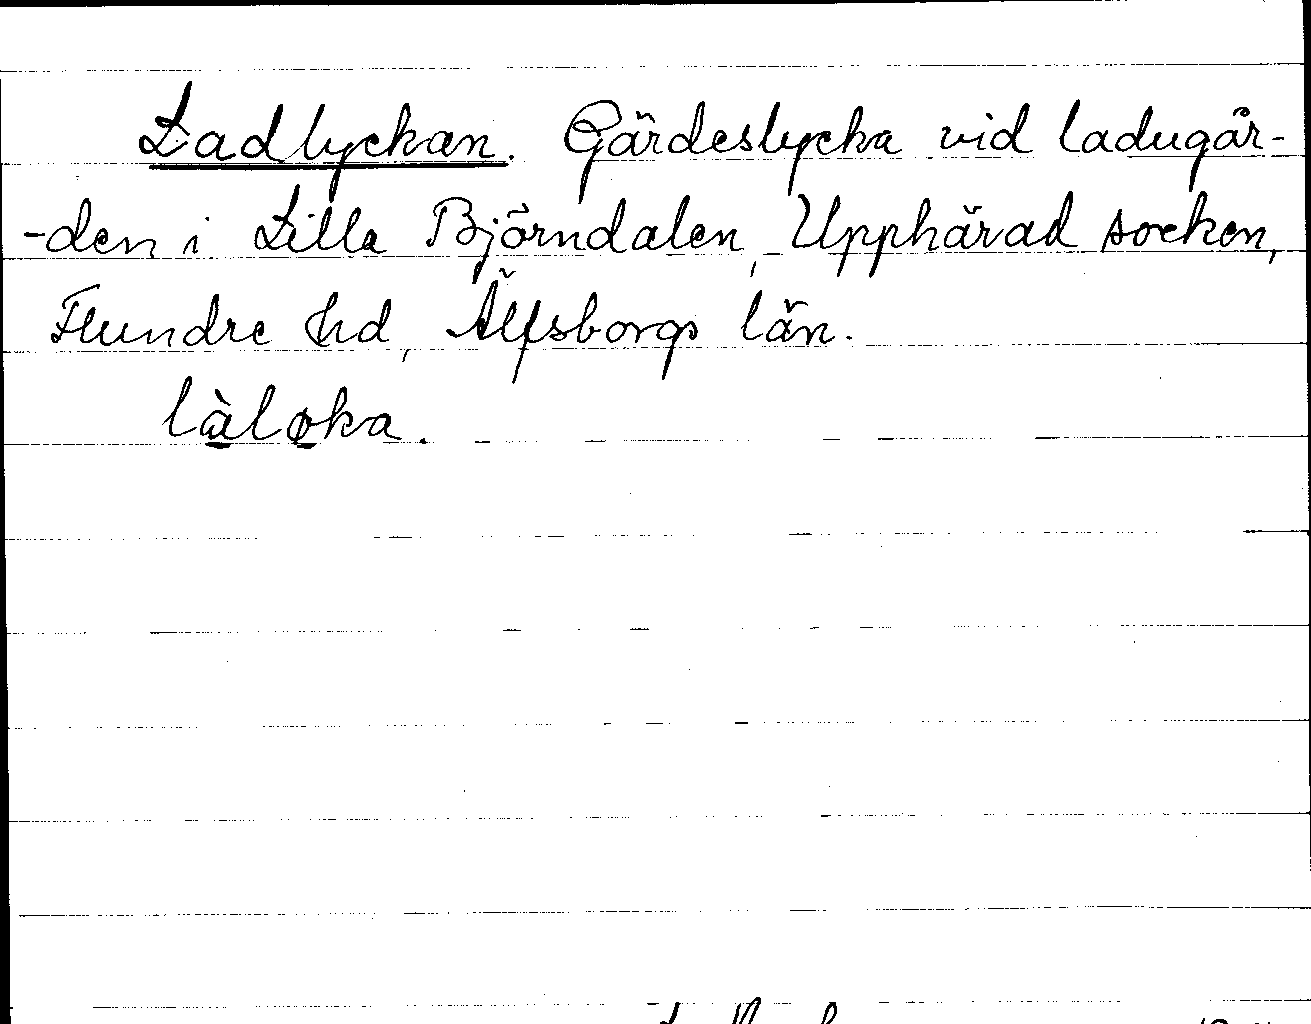 Ladlyckan. Gärdeslycka vid ladugår-
-den i Lilla Björndalen, Upphärad socken,
Flundre hd, Älfsborgs län.
làløka.